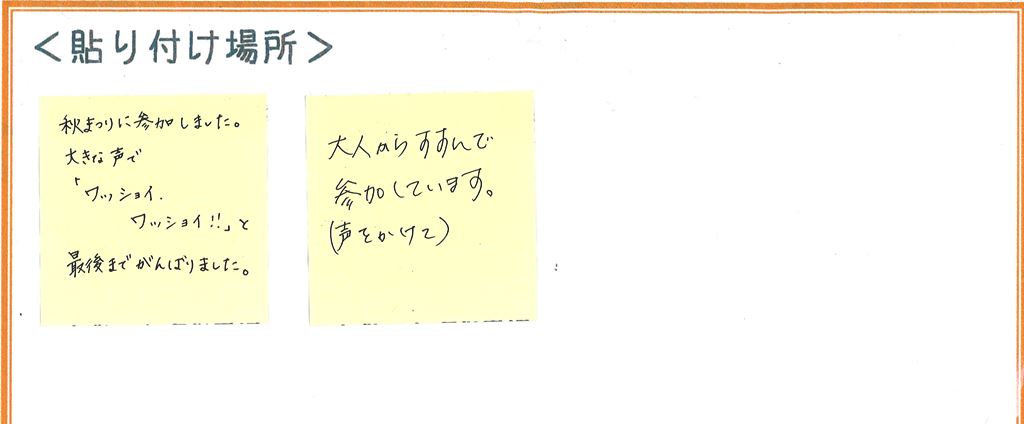 ＜貼り付け場所＞
秋まつりに参加しました。
大きな声で
「ワッショイ.
ワッショイ!!」と
最後までがんばりました。
大人からすすんで
参加しています。
(声をかけて)